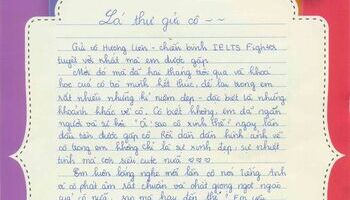 Lá thư gửi cô ~ ~
Gửi cô Hương Liên - chiến binh IELTS Fighter
tuyệt vời nhất mà em được gặp.
Mới đó mà đã hai tháng trôi qua và khoá
học của cô trò mình kết thúc, để lại trong em
rất nhiều những kỉ niệm đẹp - đặc biệt là những
khoảnh khắc về cô. Cô biết không, em đã ngẩn
người và sự hỏi "Ai sao cô xinh thế" ngay lần
đầu tiên được gặp cô. Rồi dần dần hình ảnh về
cô trong em không chỉ là sự xinh đẹp, sự nhiệt
tình mà còn siêu cute nữa ♡♡♡
Em luôn lắng nghe mỗi lần cô nói tiếng Anh
vì cô phát âm rất chuẩn và phát giọng ngọt ngào
quá cô nữa, sao mà hay đến thế? Em yêu